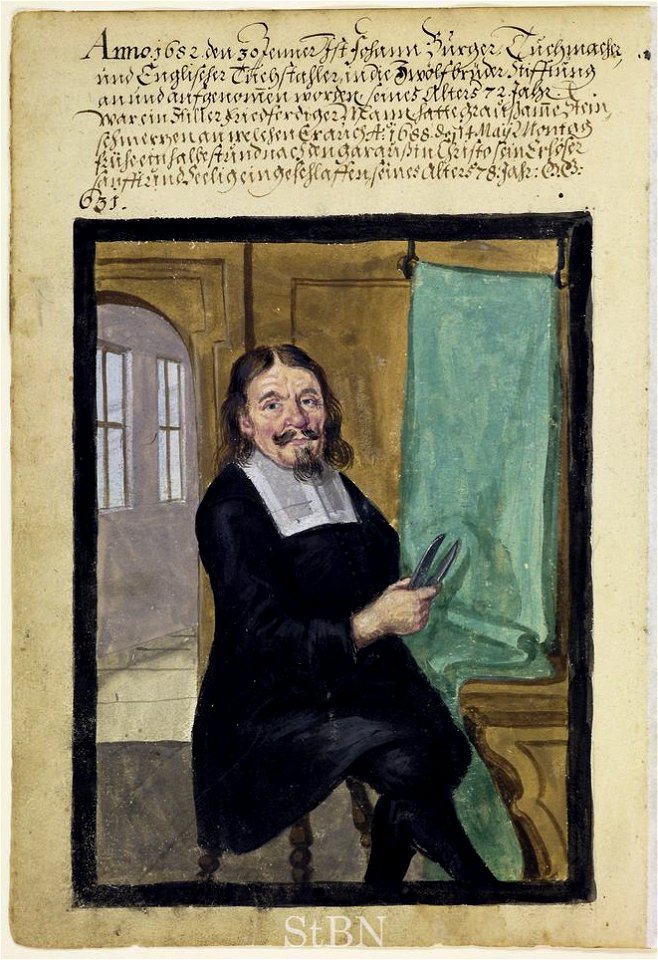 Anno 1682 den 30 Jenner Ist Johann Bürger, Tuchmacher
und Englischer Tuchstahler, in die Zwölfbrüder Stifftung
an und aufgenommen worden seines Alters 72 Jahr.
War ein Stiller friedferdiger Mann, hatte grausame Stein=
schmerzen an welchen Er auch A: 1688 14 May Montag
frühe ein halbe stund nach den garauß in Christo sein Erlöser
sanfft und Seelig eingeschlaffen, seines Alters 78 Jahr:
631.
StBN